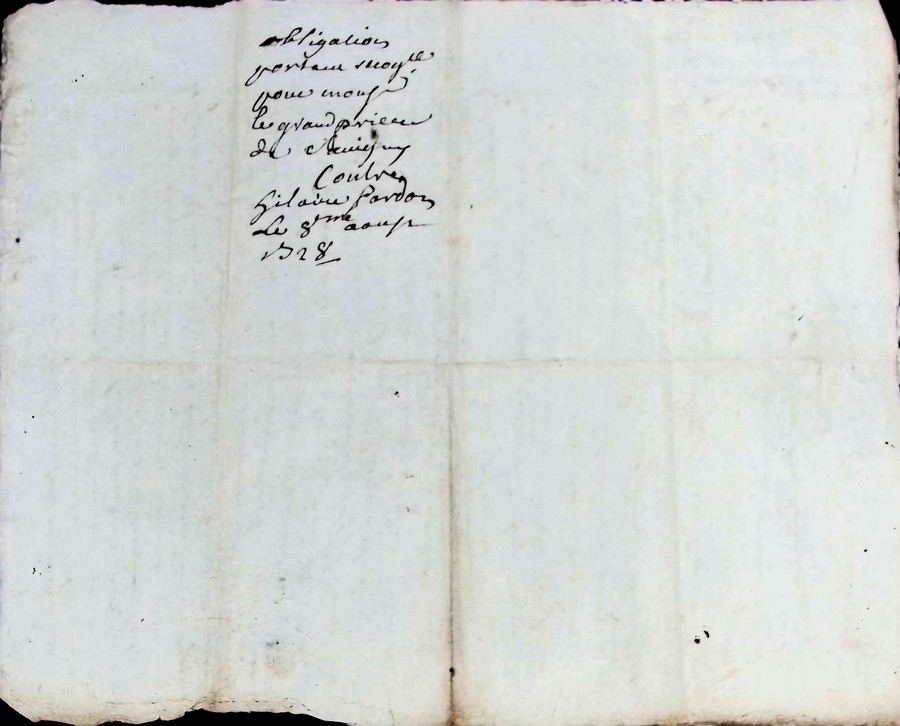 obligation
portant
pour monsr
le grand prieur
de Savigny
Contre
hilaire Pardon
Le 8eme aoust
1728